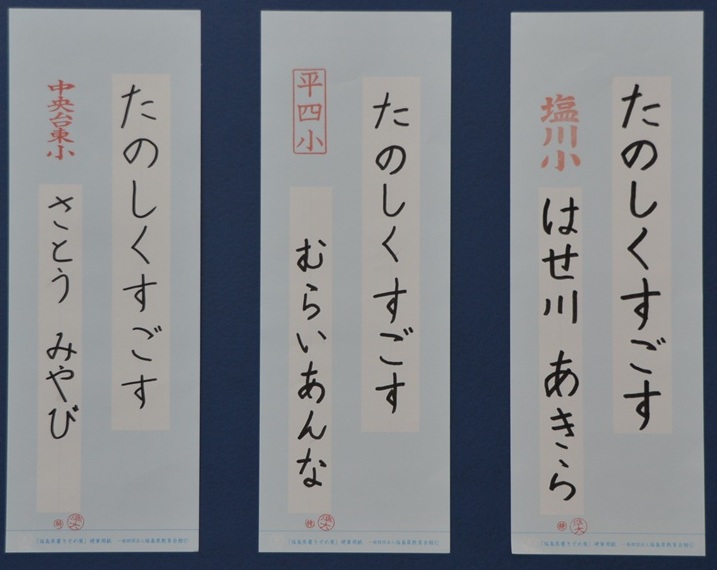 たのしくすごす
塩川小
はせ川 あきら
たのしくすごす
平四小
むらいあんな
たのしくすごす
中央台東小
さとう みやび